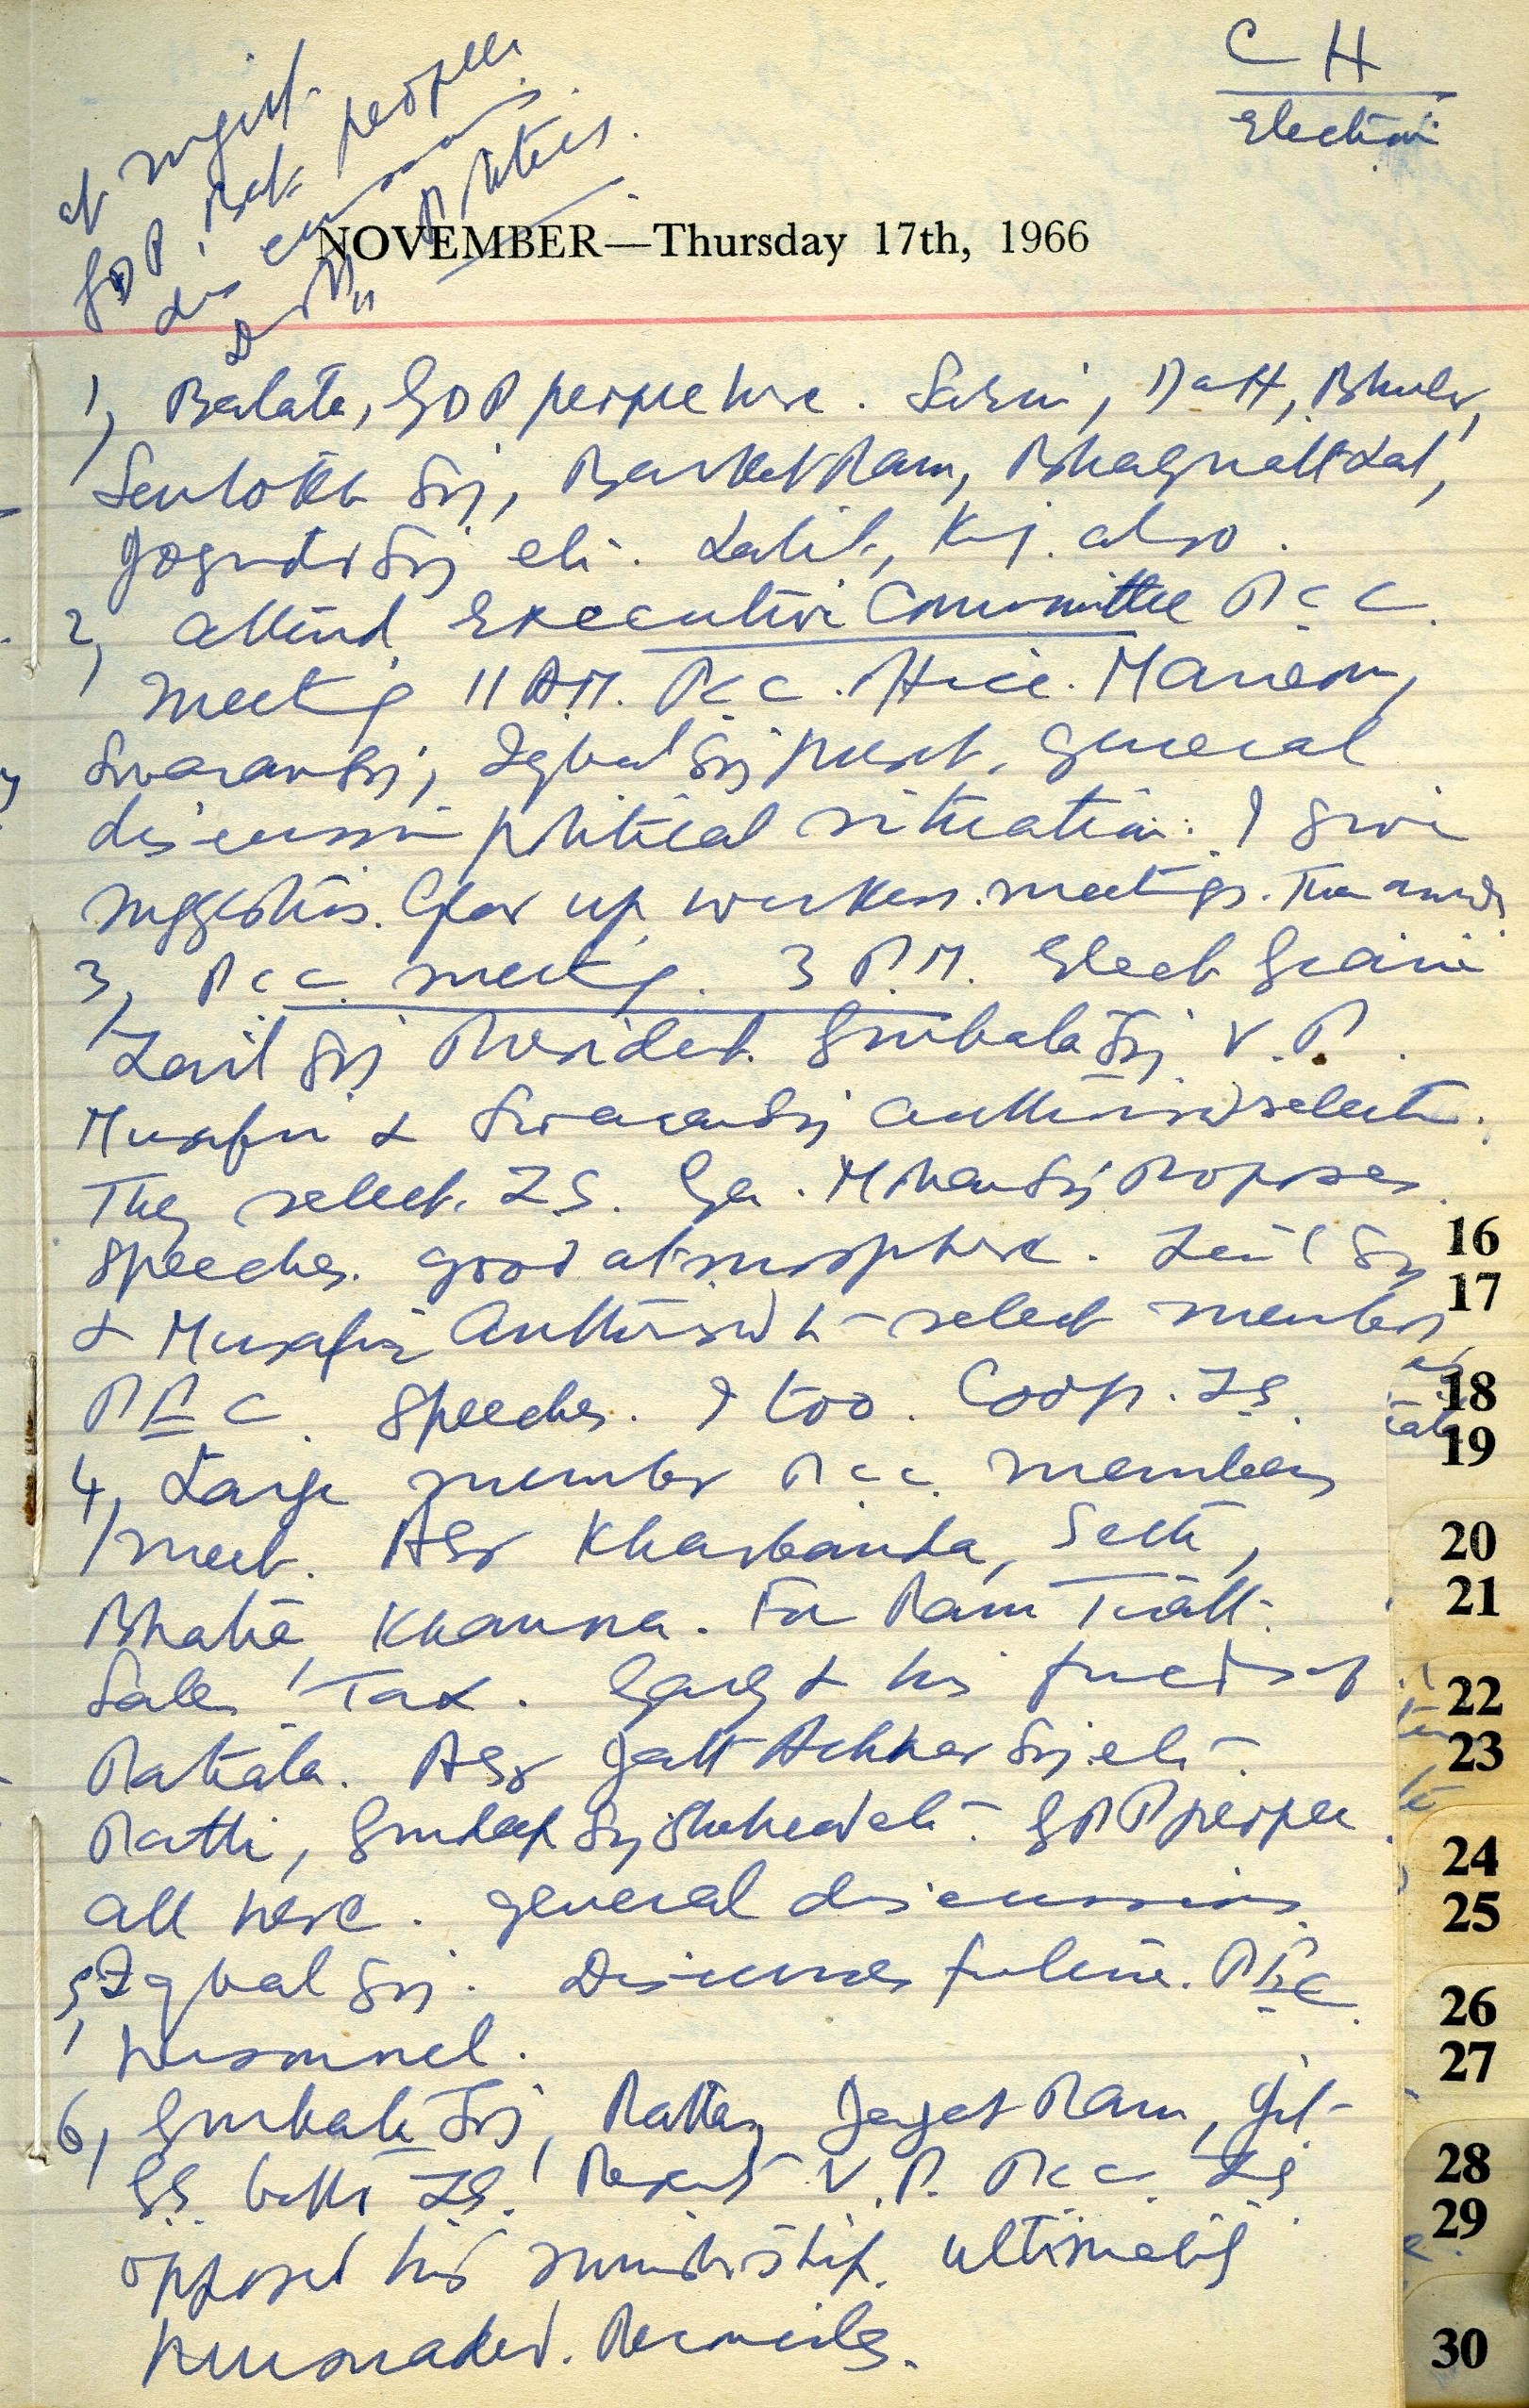 C H
Election
at night.
GDP. Bat. people
discussions.
NOVEMBER—Thursday 17th, 1966
1, Batala, GDP people here. Saini, Datt,
Santokh Sij, Barkat Ram,
Jogindr Sij etc. also.
2, Attend Executive Committee P.C.C.
meeting 11 A.M. P.C.C. Office.
Swaran Sij, Iqbal Sij present. General
discussion political situation. I give
suggestions. Gear up workers. meetings.
3, P.C.C. meeting. 3 P.M. Elect Giani
Zail Sij President. Gurbata Sij V.P.
Musafir & Swaran Sij authorised select.
They select. Z.S. Gen. Mohan Sij Proposes
Speeches. good atmosphere. Zail Sij
& Musafir Authorised to select members
P.E.C. Speeches. I too. Coop. Z.S.
4, Large number P.C.C. members
meet. ASr Kharbanda, Seth,
Bhatia, Khanna. For Ram
Sales Tax. Garg & his friends of
Patiala. ASr Sij etc.
Gurdeep Sij etc. people
all here. General discussions.
5, Iqbal Sij. Discusses future. P.E.C.
personnel.
6, Gurbata Sij, Rattan, Jagat Ram,
G.S. Z.S. V.P. P.C.C. Z.S.
opposed his ministership. Ultimately
persuaded. Reconciles.
16
17
18
19
20
21
22
23
24
25
26
27
28
29
30